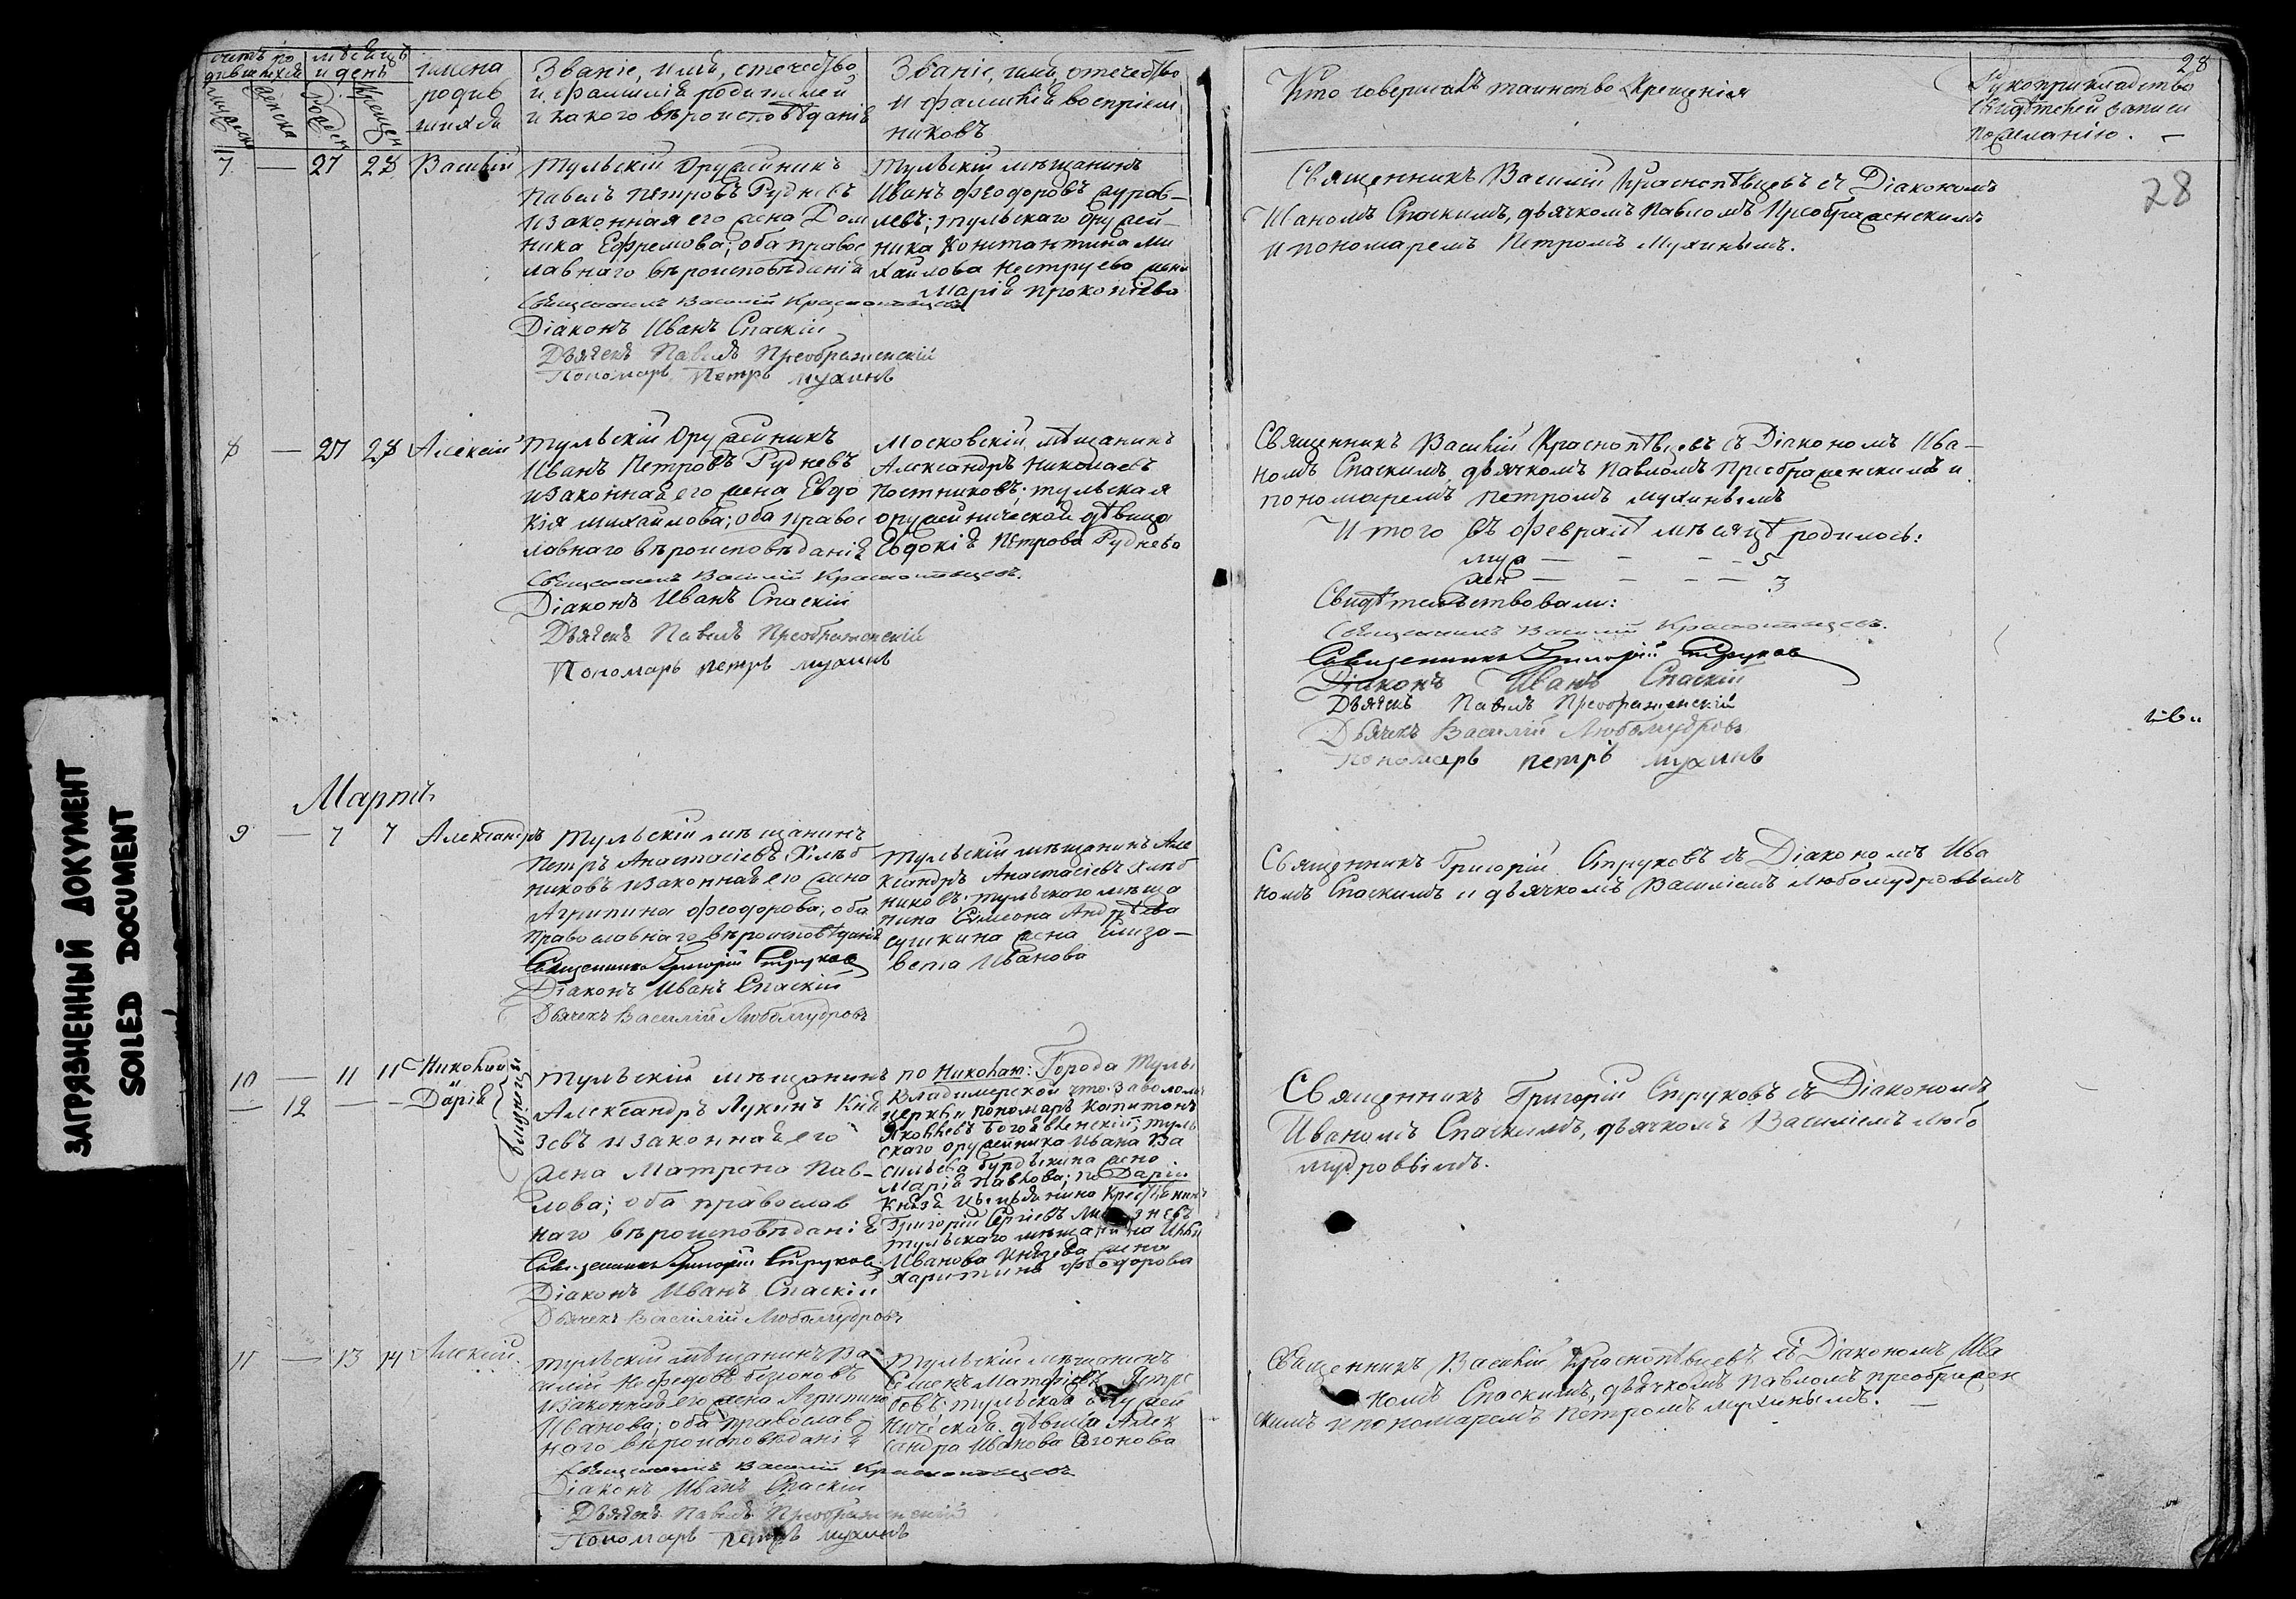 28
счетъ ро
дившихся
мѣсяцъ
и день
имена
родив
шихся
Званіе, имя, отечество
и фамилія родителей
и какого вѣроисповѣданія
Званіе, имя, отечество
и фамилія воспріем
никовъ
мужеска
женска
рожден
крещен
Кто совершалъ таинство Крещенія
Рукоприкладство
свидѣтелей записи
по желанію. —
28
7 — 27 28 Василій
Тульскій Оружейникъ
Павелъ Петровъ Рудневъ
и законная его жена Дом
ника Ефремова; оба правос
лавнаго вѣроисповѣданія
Священникъ Василій Краснопѣвцевъ
Діаконъ Иванъ Спаскій
Дьячекъ Павелъ Преображенскій
Пономарь Петръ Мухинъ
Тульскій мѣщанинъ
Иванъ Феодоровъ Журав—
левъ; тульскаго оружей—
ника Константина Ми
хайлова Неструева жена
Марія Прокопіева
Священникъ Василій Краснопѣвцевъ съ Діакономъ
Иваномъ Спаскимъ, дьячкомъ Павломъ Преображенскимъ
и пономаремъ Петромъ Мухинымъ.
8 — 27 28 Алексій
Тульскій Оружейникъ
Иванъ Петровъ Рудневъ
и законная его жена Евдо
кія Михайлова; оба правос
лавнаго вѣроисповѣданія
Священникъ Василій Краснопѣвцевъ.
Діаконъ Иванъ Спаскій
Дьячекъ Павелъ Преображенскій
Пономарь Петръ Мухинъ
Московскій мѣщанинъ
Александръ Николаевъ
Постниковъ; тульская
оружейническая дѣвица
Евдокія Петрова Руднева
Священникъ Василій Краснопѣвцевъ съ Діакономъ Ива—
номъ Спаскимъ, дьячкомъ Павломъ Преображенскимъ и
пономаремъ Петромъ Мухинымъ
Итого въ февралѣ мѣсяцѣ родилось:
муж — — — 5
жен — — — — 3
Свидѣтельствовали:
Священникъ Василій Краснопѣвцевъ.
Священникъ Григорій Струковъ
Діаконъ Иванъ Спаскій
Дьячекъ Павелъ Преображенскій
Дьячекъ Василій Любомудровъ
Пономарь Петръ Мухинъ
Мартъ
9 — 7 7 Александръ
Тульскій мѣщанинъ
Петръ Анастасіевъ Хлѣб
никовъ и законная его жена
Агрипина Феодорова; оба
православнаго вѣроисповѣданія
Священникъ Григорій Струковъ
Діаконъ Иванъ Спаскій
Дьячекъ Василій Любомудровъ
Тульскій мѣщанинъ Але
ксандръ Анастасіевъ Хлѣб
никовъ; тульскаго мѣща
нина Симеона Андрѣева
Сушкина жена Елиза—
вета Иванова
Священникъ Григорій Струковъ съ Діакономъ Ива
номъ Спаскимъ и дьячкомъ Василіемъ Любомудровымъ
10 — 11 11 Николай
— 12 — — Дарія
близнецы
Тульскій мѣщанинъ
Александръ Лукинъ Кня
зевъ и законная его
жена Матрена Пав—
лова; оба православ
наго вѣроисповѣданія
Священникъ Григорій Струковъ
Діаконъ Иванъ Спаскій
Дьячекъ Василій Любомудровъ
по Николаю: Города Тулы
Владимерской что за валомъ
церкви пономарь Капитонъ
Яковлевъ Богоявленскій; туль
скаго оружейника Ивана Ва
сильева Бурдыкина жена
Марія Павлова; по Даріи
Князя крестьянинъ
Григорій Сергіевъ
тульскаго мѣщанина
Иванова Князева жена
Харитина Феодорова
Священникъ Григорій Струковъ съ Діакономъ
Иваномъ Спаскимъ, дьячкомъ Василіемъ Любо
мудровымъ.
11 — 13 14 Алексій.
Тульскій мѣщанинъ Ва
силій Нефедовъ
и законная его жена Агрипина
Иванова; оба православ
наго вѣроисповѣданія
Священникъ Василій Краснопѣвцевъ
Діаконъ Иванъ Спаскій
Дьячекъ Павелъ Преображенскій
Пономарь Петръ Мухинъ
Тульскій мѣщанинъ
Петро
въ; тульская оружей
ническая дѣвица Алек
сандра Иванова
Священникъ Василій Краснопѣвцевъ съ Діакономъ Ива
номъ Спаскимъ, дьячкомъ Павломъ Преображен
скимъ и пономаремъ Петромъ Мухинымъ. —
ЗАГРЯЗНЕННЫЙ ДОКУМЕНТ
SOILED DOCUMENT